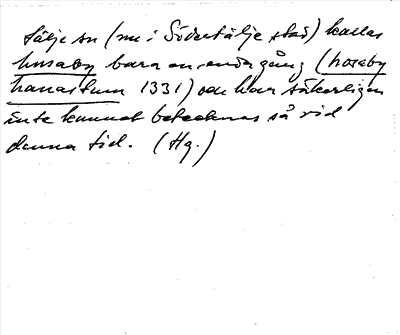 Sälje sn (nu i Södertälje stad) kallas
husaby bara en enda gång (hoseby
hanastum 1331) och har säkerligen
inte kunnat betecknas så vid
denna tid. (Hg.)